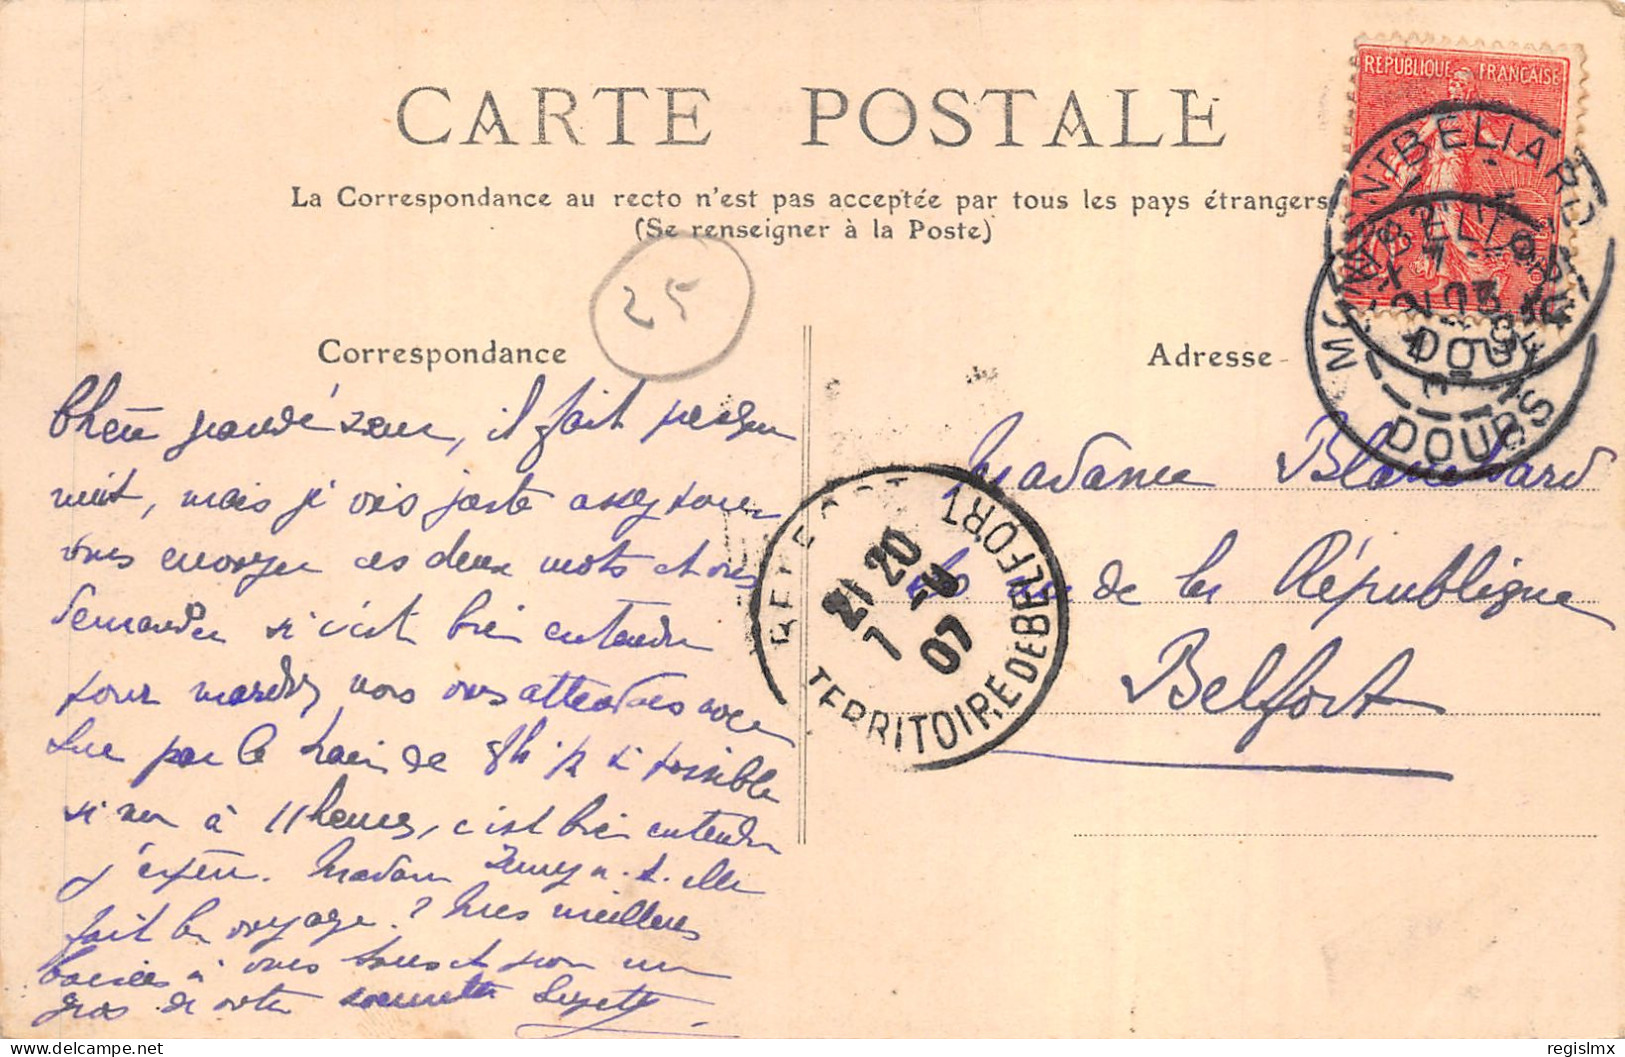 CARTE POSTALE
La Correspondance au recto n'est pas acceptée par tous les pays étrangers
(Se renseigner à la Poste)
REPUBLIQUE FRANÇAISE
MONTBELIARD
DOUBS
25
Correspondance
Adresse
grande sœur, il fait presque
nuit, mais j'y vois juste assez pour
vous envoyer ces deux mots et vous
demander si c'est bien entendu
pour mardi, nous vous attendons avec
Luc par le train de 8h 1/2 si possible
si non à 11 heures, c'est bien entendu
j'espère. Madame n.t.elle
fait bon voyage ? Mes meilleurs
baisers à vous tous et pour un
gros de votre sœurette Suzette
Madame Blanchard
rue de la République
Belfort
BELFORT
21 20
7
07
TERRITOIRE DE BELFORT
delcampe.net
regislmx